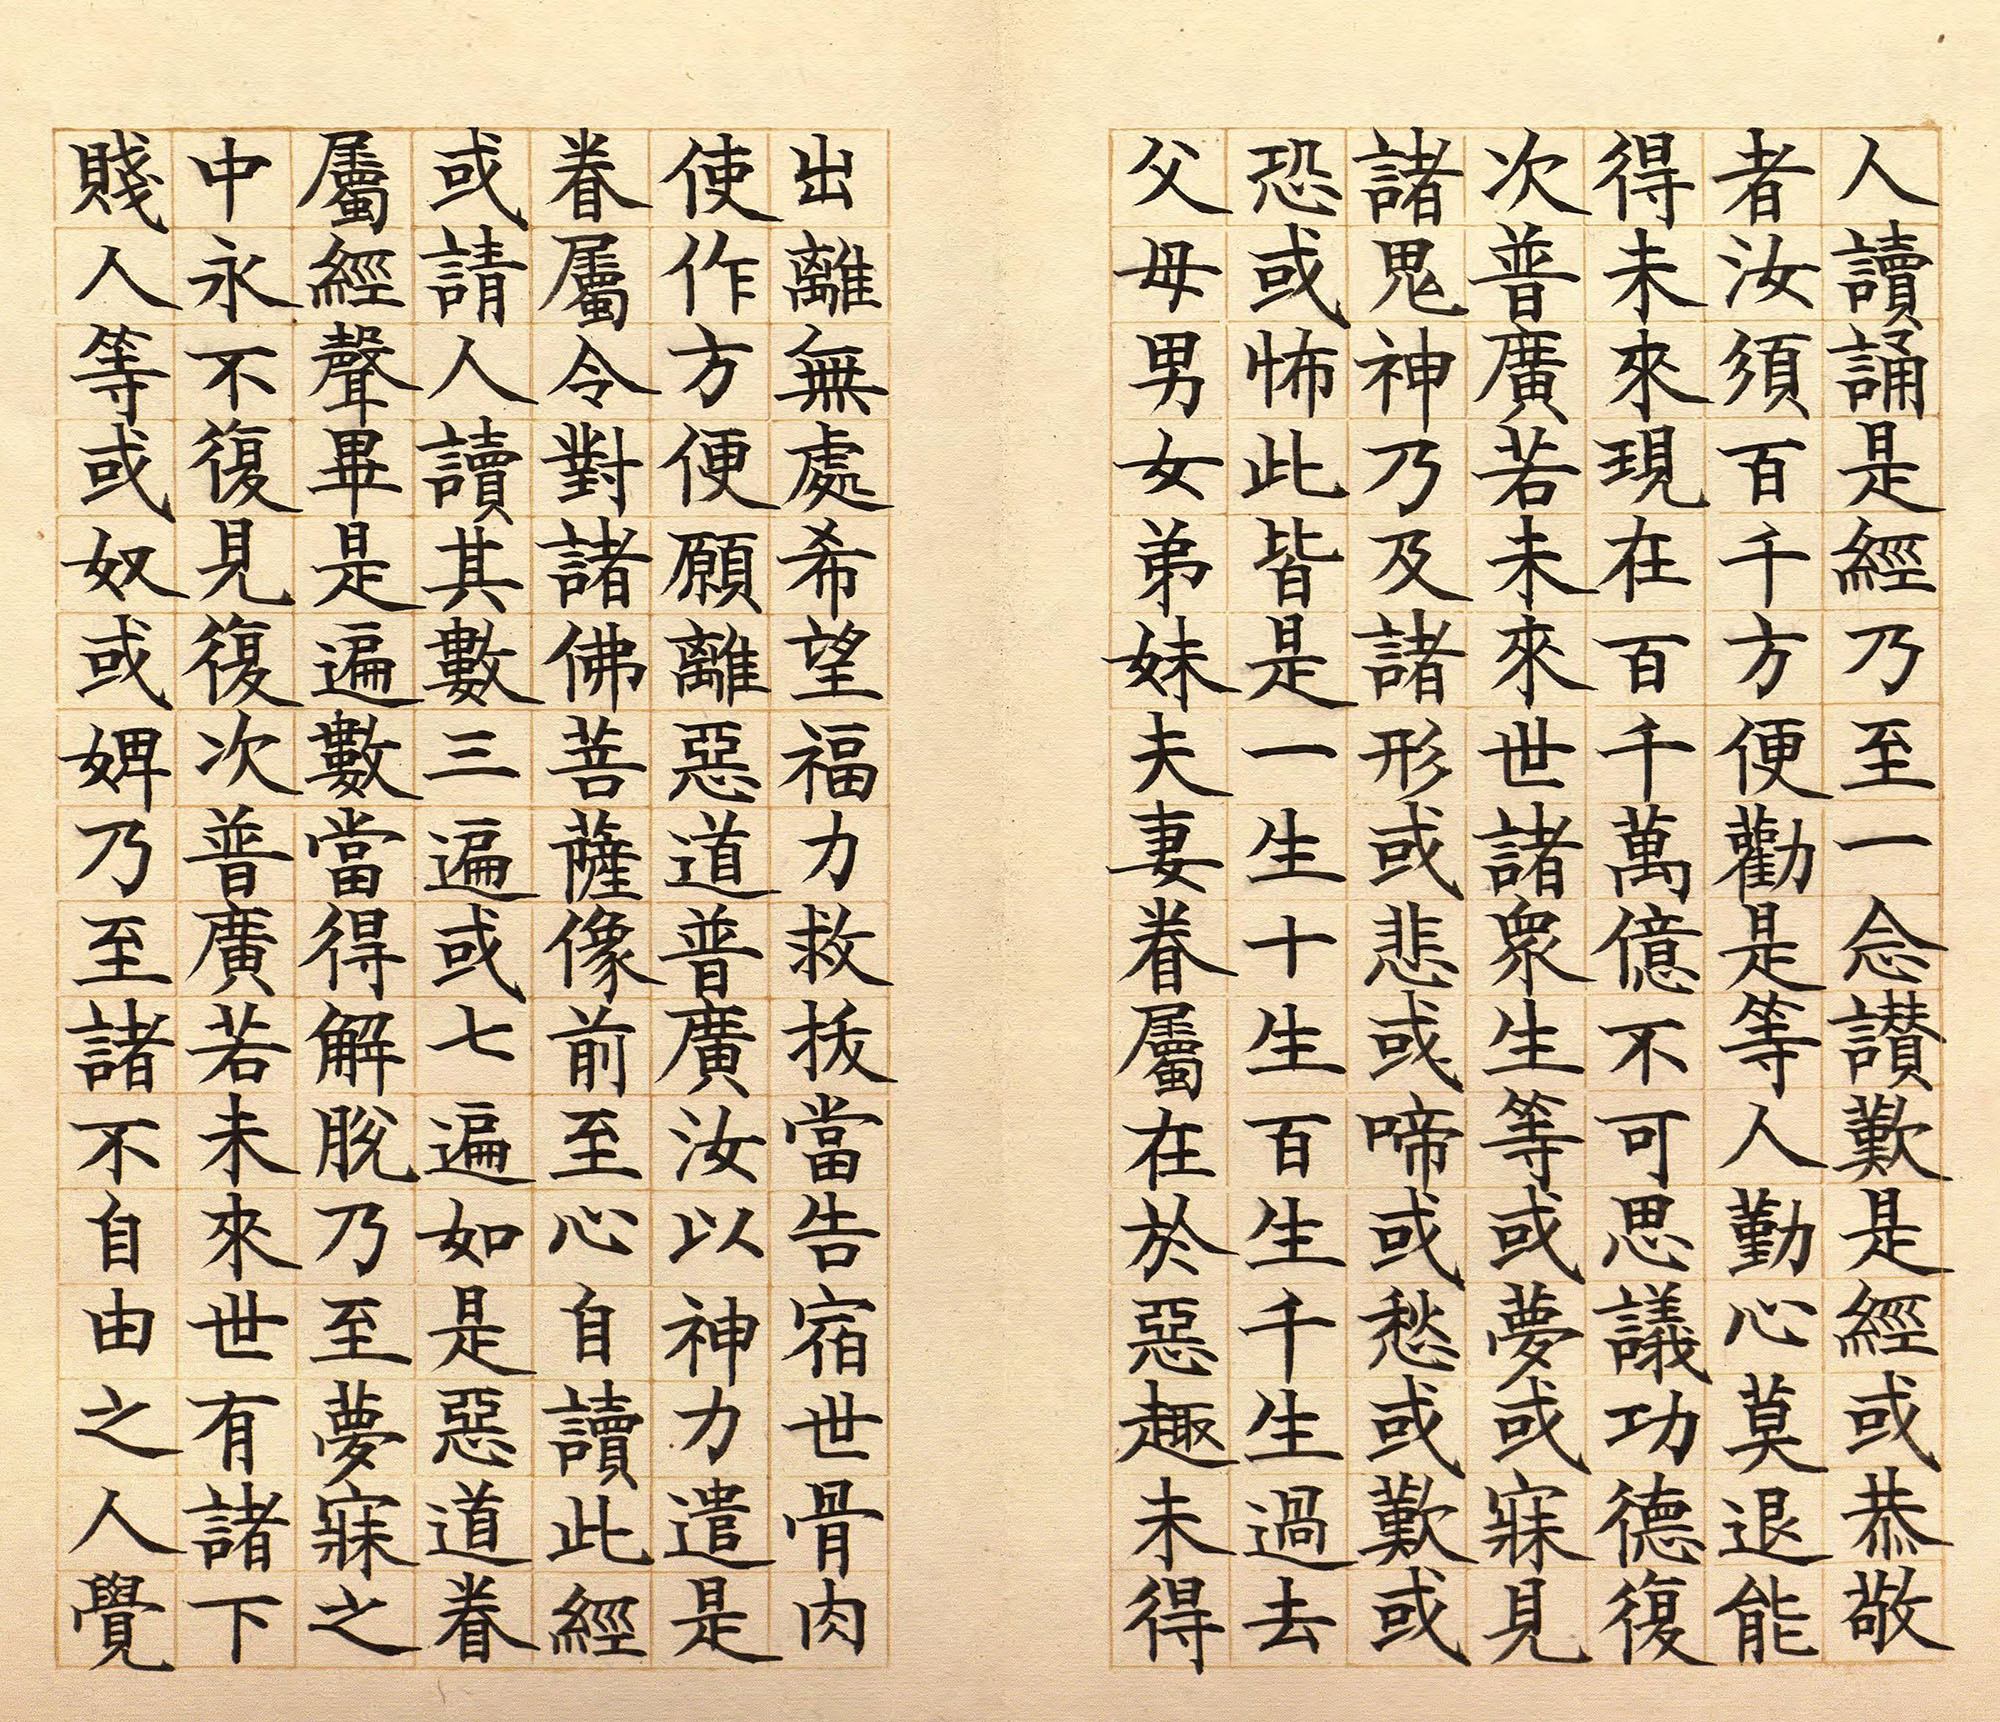 人讀誦是經乃至一念讃歎是經或恭敬
者汝須百千方便勸是等人勤心莫退能
得未來現在百千萬億不可思議功德復
次普廣若未來世諸衆生等或夢或寐見
諸鬼神乃及諸形或悲或啼或愁或歎或
恐或怖此皆是一生十生百生千生過去
父母男女弟妹夫妻眷屬在於惡趣未得
出離無處希望福力救拔當告宿世骨肉
使作方便願離惡道普廣汝以神力遣是
眷屬令對諸佛菩薩像前至心自讀此經
或請人讀其數三遍或七遍如是惡道眷
屬經聲畢是遍數當得解脫乃至夢寐之
中永不復見復次普廣若未來世有諸下
賤人等或奴或婢乃至諸不自由之人覺